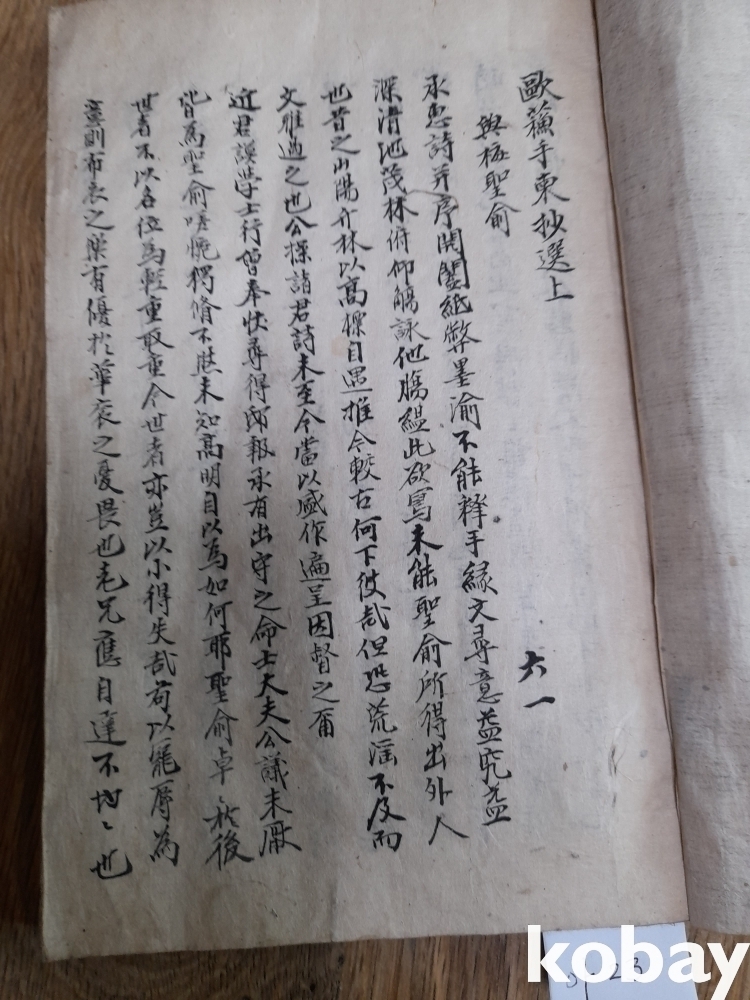 歐蘓手柬抄選上
與梅聖俞 六一
承惠詩并序開闔紙弊墨渝不能釋手緣文尋意益究益
深清池茂林俯仰觴詠他腸縕此欲寫未能聖俞所得出外人
也昔之山陽竹林以高標自遇推今較古何下彼哉但恐荒滛不及而
文雅過之也公操諸君詩未至今當以盛作遍呈因督之爾
近君謨學士行曾奉快尋得邸報承有出守之命士大夫公議未厭
皆為聖俞嗟惋獨脩不然未知高明自以為如何耶聖俞卓〻於後
世者不以名位為輕重取重今世者亦豈以小得失哉苟以寵辱為
意則布衣之樂有優於華袞之憂畏也老兄應自達不怐〻也
kobay
23